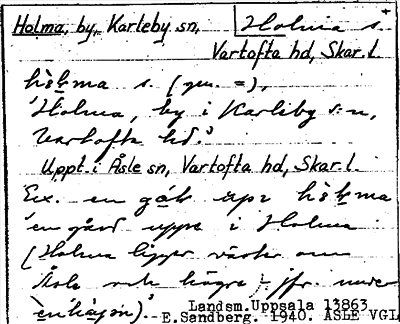 Holma, by, Karleby sn,
Holma s.
Vartofta hd, Skar.l.
hòḷma s. (gen. =),
'Holma, by i Karleby s:n,
Vartofta hd.'
Uppt. i Åsle sn, Vartofta hd, Skar.l.
Ex. en gå̱ḷ upe hòḷma
'en gård uppe i Holma
(Holma ligger väster om
Åsle och högre) - jfr.
Landsm.Uppsala 13863
E.Sandberg. 1940. ÅSLE VGL